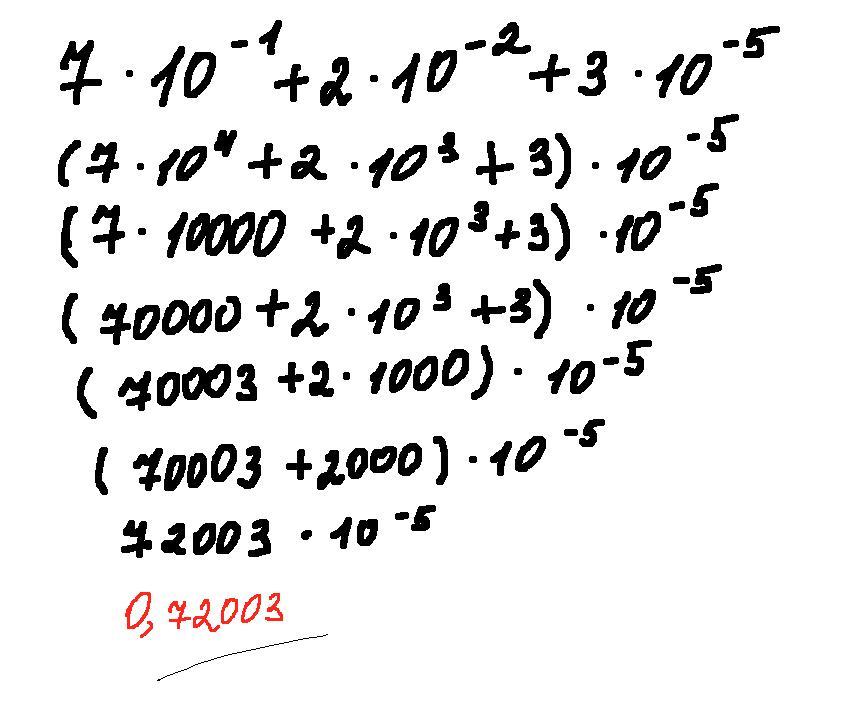 7 · 10⁻¹ + 2 · 10⁻² + 3 · 10⁻⁵
(7 · 10⁴ + 2 · 10³ + 3) · 10⁻⁵
(7 · 10000 + 2 · 10³ + 3) · 10⁻⁵
(70000 + 2 · 10³ + 3) · 10⁻⁵
(70003 + 2 · 1000) · 10⁻⁵
(70003 + 2000) · 10⁻⁵
72003 · 10⁻⁵
0,72003